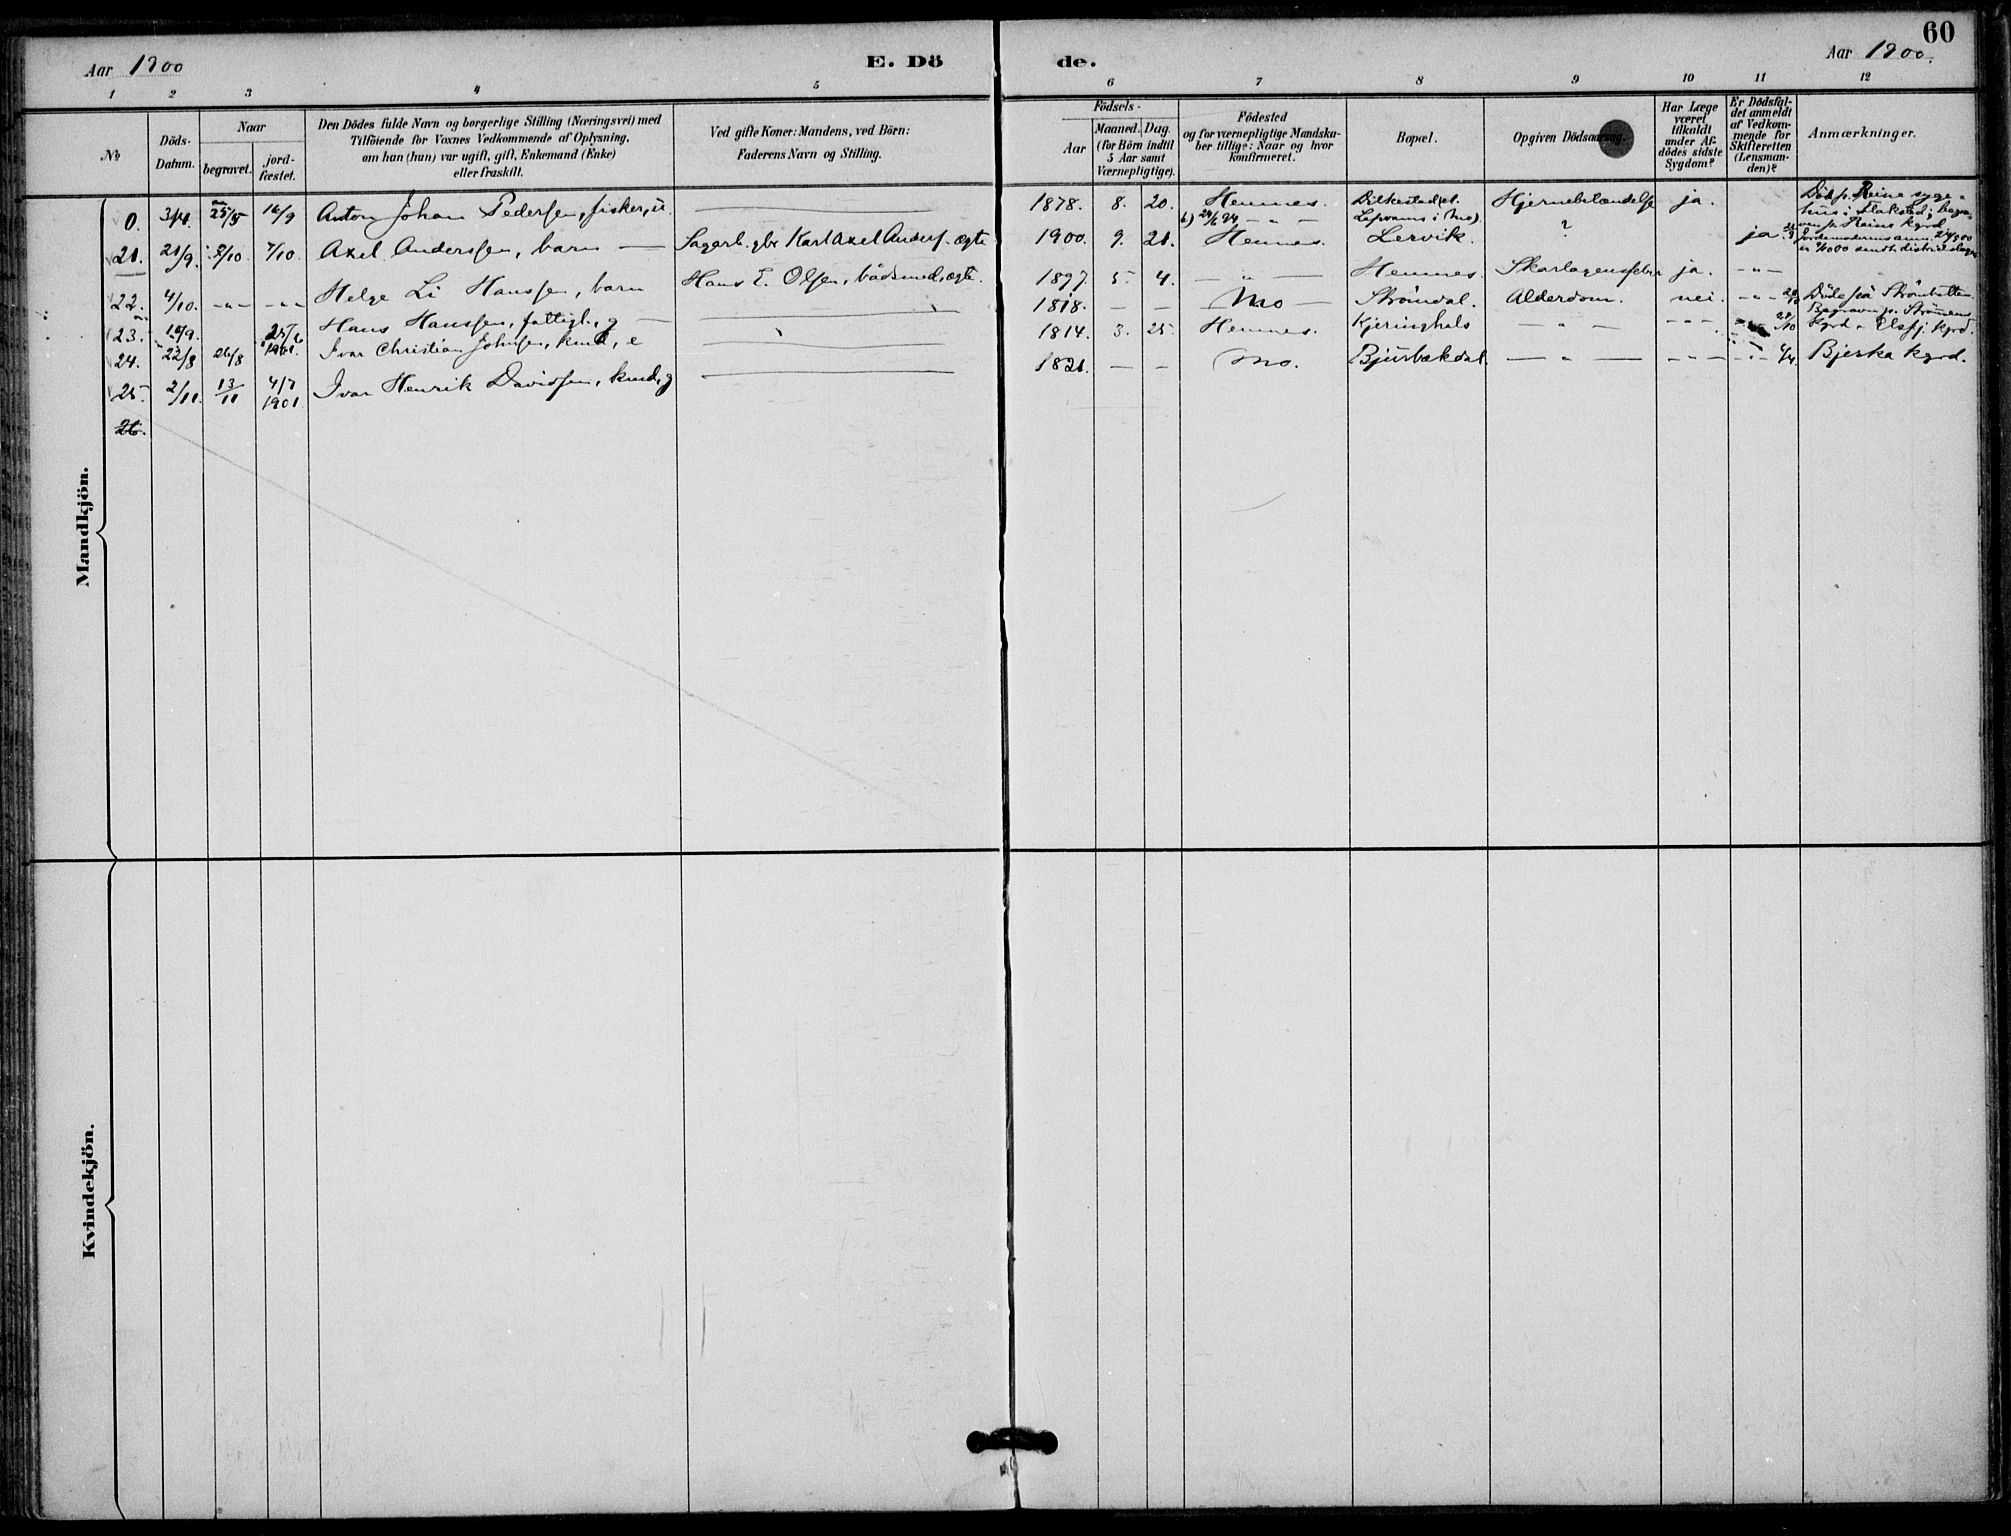 60
Aar 1900 E. Dö de. Aar 1900.
1 2 3 4 5 6 7 8 9 10 11 12
No
Döds-Datum.
Naar
begravet.
jord-fæstet.
Den Dödes fulde Navn og borgerlige Stilling (Næringsvei) med
Tilföiende for Voxnes Vedkommende af Oplysning,
om han (hun) var ugift, gift, Enkemand (Enke)
eller fraskilt.
Ved gifte Koner: Mandens, ved Börn:
Faderens Navn og Stilling.
Födsels-
Aar
Maaned. Dag.
(for Börn indtil
5 Aar samt
Værnepligtige).
Födested
og for værnepligtige Mandska-
ber tillige: Naar og hvor
konfirmeret.
Bopæl.
Opgiven Dödsaarsag.
Har Læge
været
tilkaldt
under Af-
dödes sidste
Sygdom?
Er Dödsfal-
det anmeldt
af Vedkom-
mende for
Skifteretten
(Lensman-
den)?
Anmærkninger.
Mandkjön.
0. 3/4. 25/5 16/9 Anton Johan Pedersen, fisker, u. 1878. 8. 20. Hemnes. Hjernebetændelse ja. Död p. Reine syge-
24/6 94 - " - i Mo). hus i Flakstad; begra-
21. 21/9. 7/10 7/10. Axel Anderssen, barn — Sagarb. gbr Karl Axel Anders. ægte 1900. 9. 21. Hemnes. Lervik. ? ja
22. 4/10. - " - - " - Helge Li Hanssen, barn Hans E. Olsen, bådsmed, ægte. 1897. 5 4. — " — Hemnes. Skarlagensfeber ja. - " -
23. 10/9. 1901. Hans Hanssen, fattigl., g — 1818. — — Mo Strömdal. Alderdom. nei. - " - Döde på
24. 22/8 26/8 Ivar Christian Johnsen, kmd, e 1814. 3. 25. Hemnes. Kjeringhals — " — - " - Kyrd - Elsfj. kyrd.
25. 2/11. 13/11 4/7 1901 Ivar Henrik Davidsen, kmd, g 1821. — — Mo. Bjurbækdal. — " — - " - - " - 4/4. Bjerka kyrd.
26.
Kvindekjön.